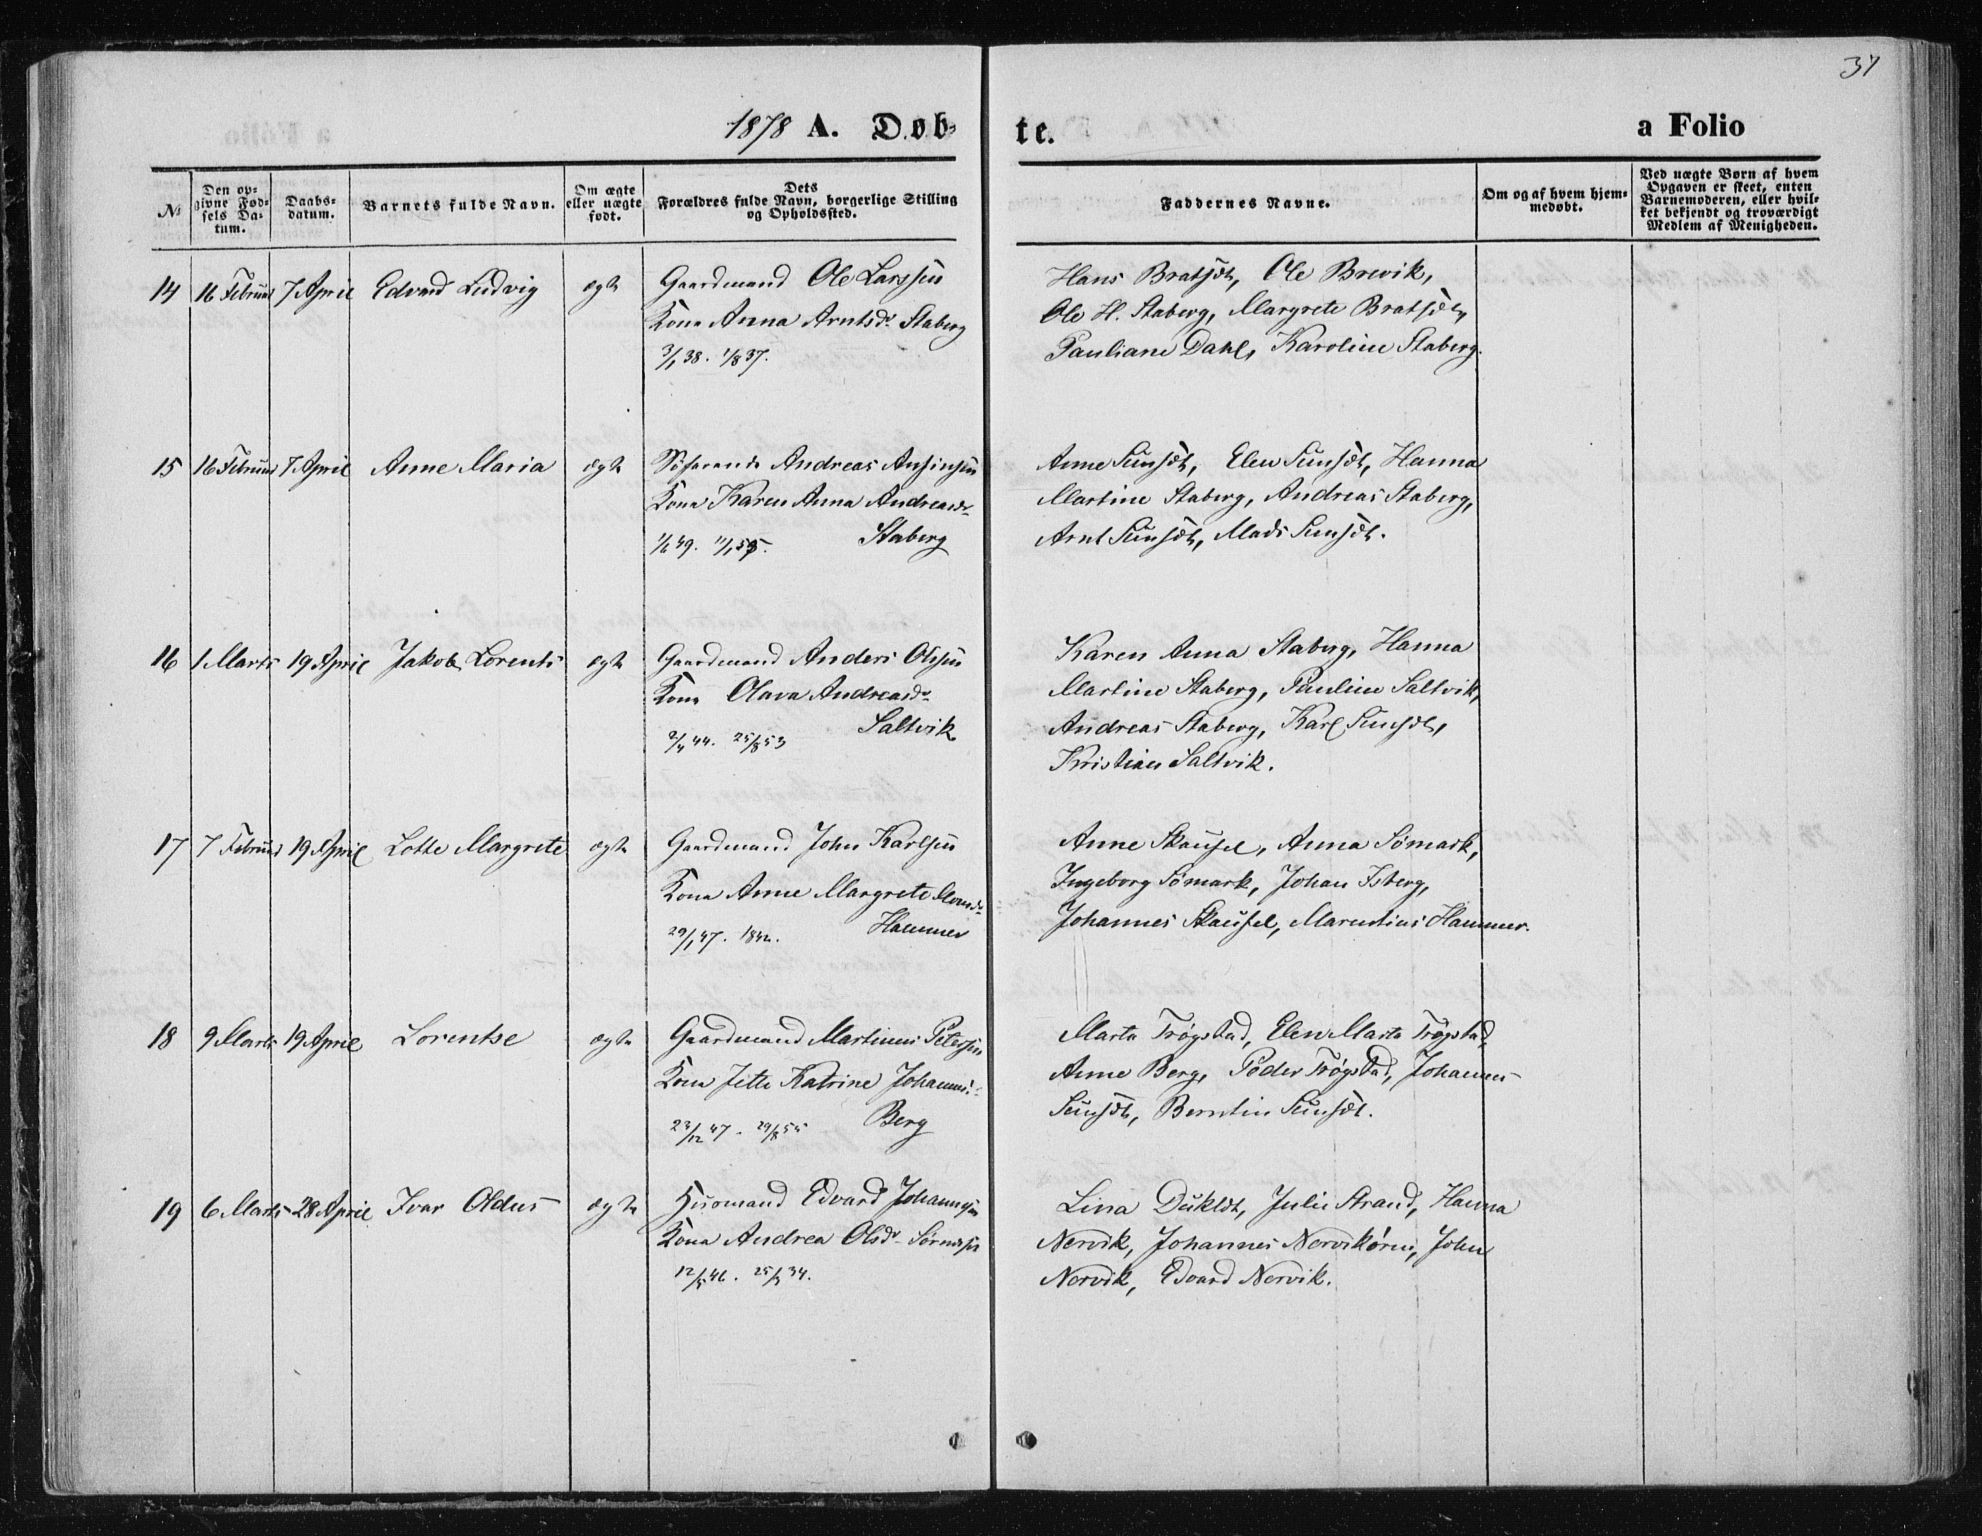 37
1878 A. Døb-
te.
a Folio
№
Den op-
givne Fød-
sels Da-
tum.
Daabs-
datum.
Barnets fulde Navn.
Om ægte
eller uægte
født.
Dets
Forældres fulde Navn, borgerlige Stilling
og Opholdssted.
Faddernes Navne.
Om og af hvem hjem-
medøbt.
Ved uægte Børn af hvem
Opgaven er skeet, enten
Barnemoderen, eller hvil-
ket bekjendt og troværdigt
Medlem af Menigheden.
14 16 Februar 7 April Edvard Ludvig ægte Gaardmand Ole Larssen
Kona Anna Arntsd. Staberg
3/1 38. 1/8 37.
Hans Bratset, Ole Brevik,
Ole H. Staberg, Margrete Bratset,
Pauliane Dahl, Karoline Staberg.
15 16 Februar 7 April Anne Maria ægte Søfarende Andreas
Kona Karen Anna Andreasd.
Staberg
49. 11/1 55.
Anne Sunset, Elen Sunset, Hanna
Martine Staberg, Andreas Staberg,
Arnt Sunset, Mads Sunset.
16 1 Marts 19 April Jakob Lorents ægte Gaardmand Anders Olssen
Kona Olava Andreasd.
Saltvik
2/4 44. 25/8 53
Karen Anna Staberg, Hanna
Martine Staberg, Pauline Saltvik,
Andreas Staberg, Karl Sunset,
Kristian Saltvik.
17 7 Februar 19 April Lotte Margrete ægte Gaardmand John Karlsen
Kona Anne Margrete
Hammer
29/1 47. 1842.
Anne Skaufel, Anna Sømark,
Ingeborg Sømark, Johan Isberg,
Johannes Skaufel, Marentius Hammer.
18 9 Marts 19 April Lorentse ægte Gaardmand Martinus Petersen
Kona Jette Katrine Johannesd.
Berg
23/12 47. 29/8 55
Marta Trøgstad, Elen Marta Trøgstad,
Anne Berg, Peder Trøgstad, Johannes
Sunset, Berntin Sunset.
19 6 Marts 28 April Ivar Oldus ægte Husmand Edvard Johannsen
Kona Andrea Olsd.
12/5 46. 25/3 34.
Lina Duklet, Julie Strand, Hanna
Nervik, Johannes Nervikøren, John
Nervik, Edvard Nervik.